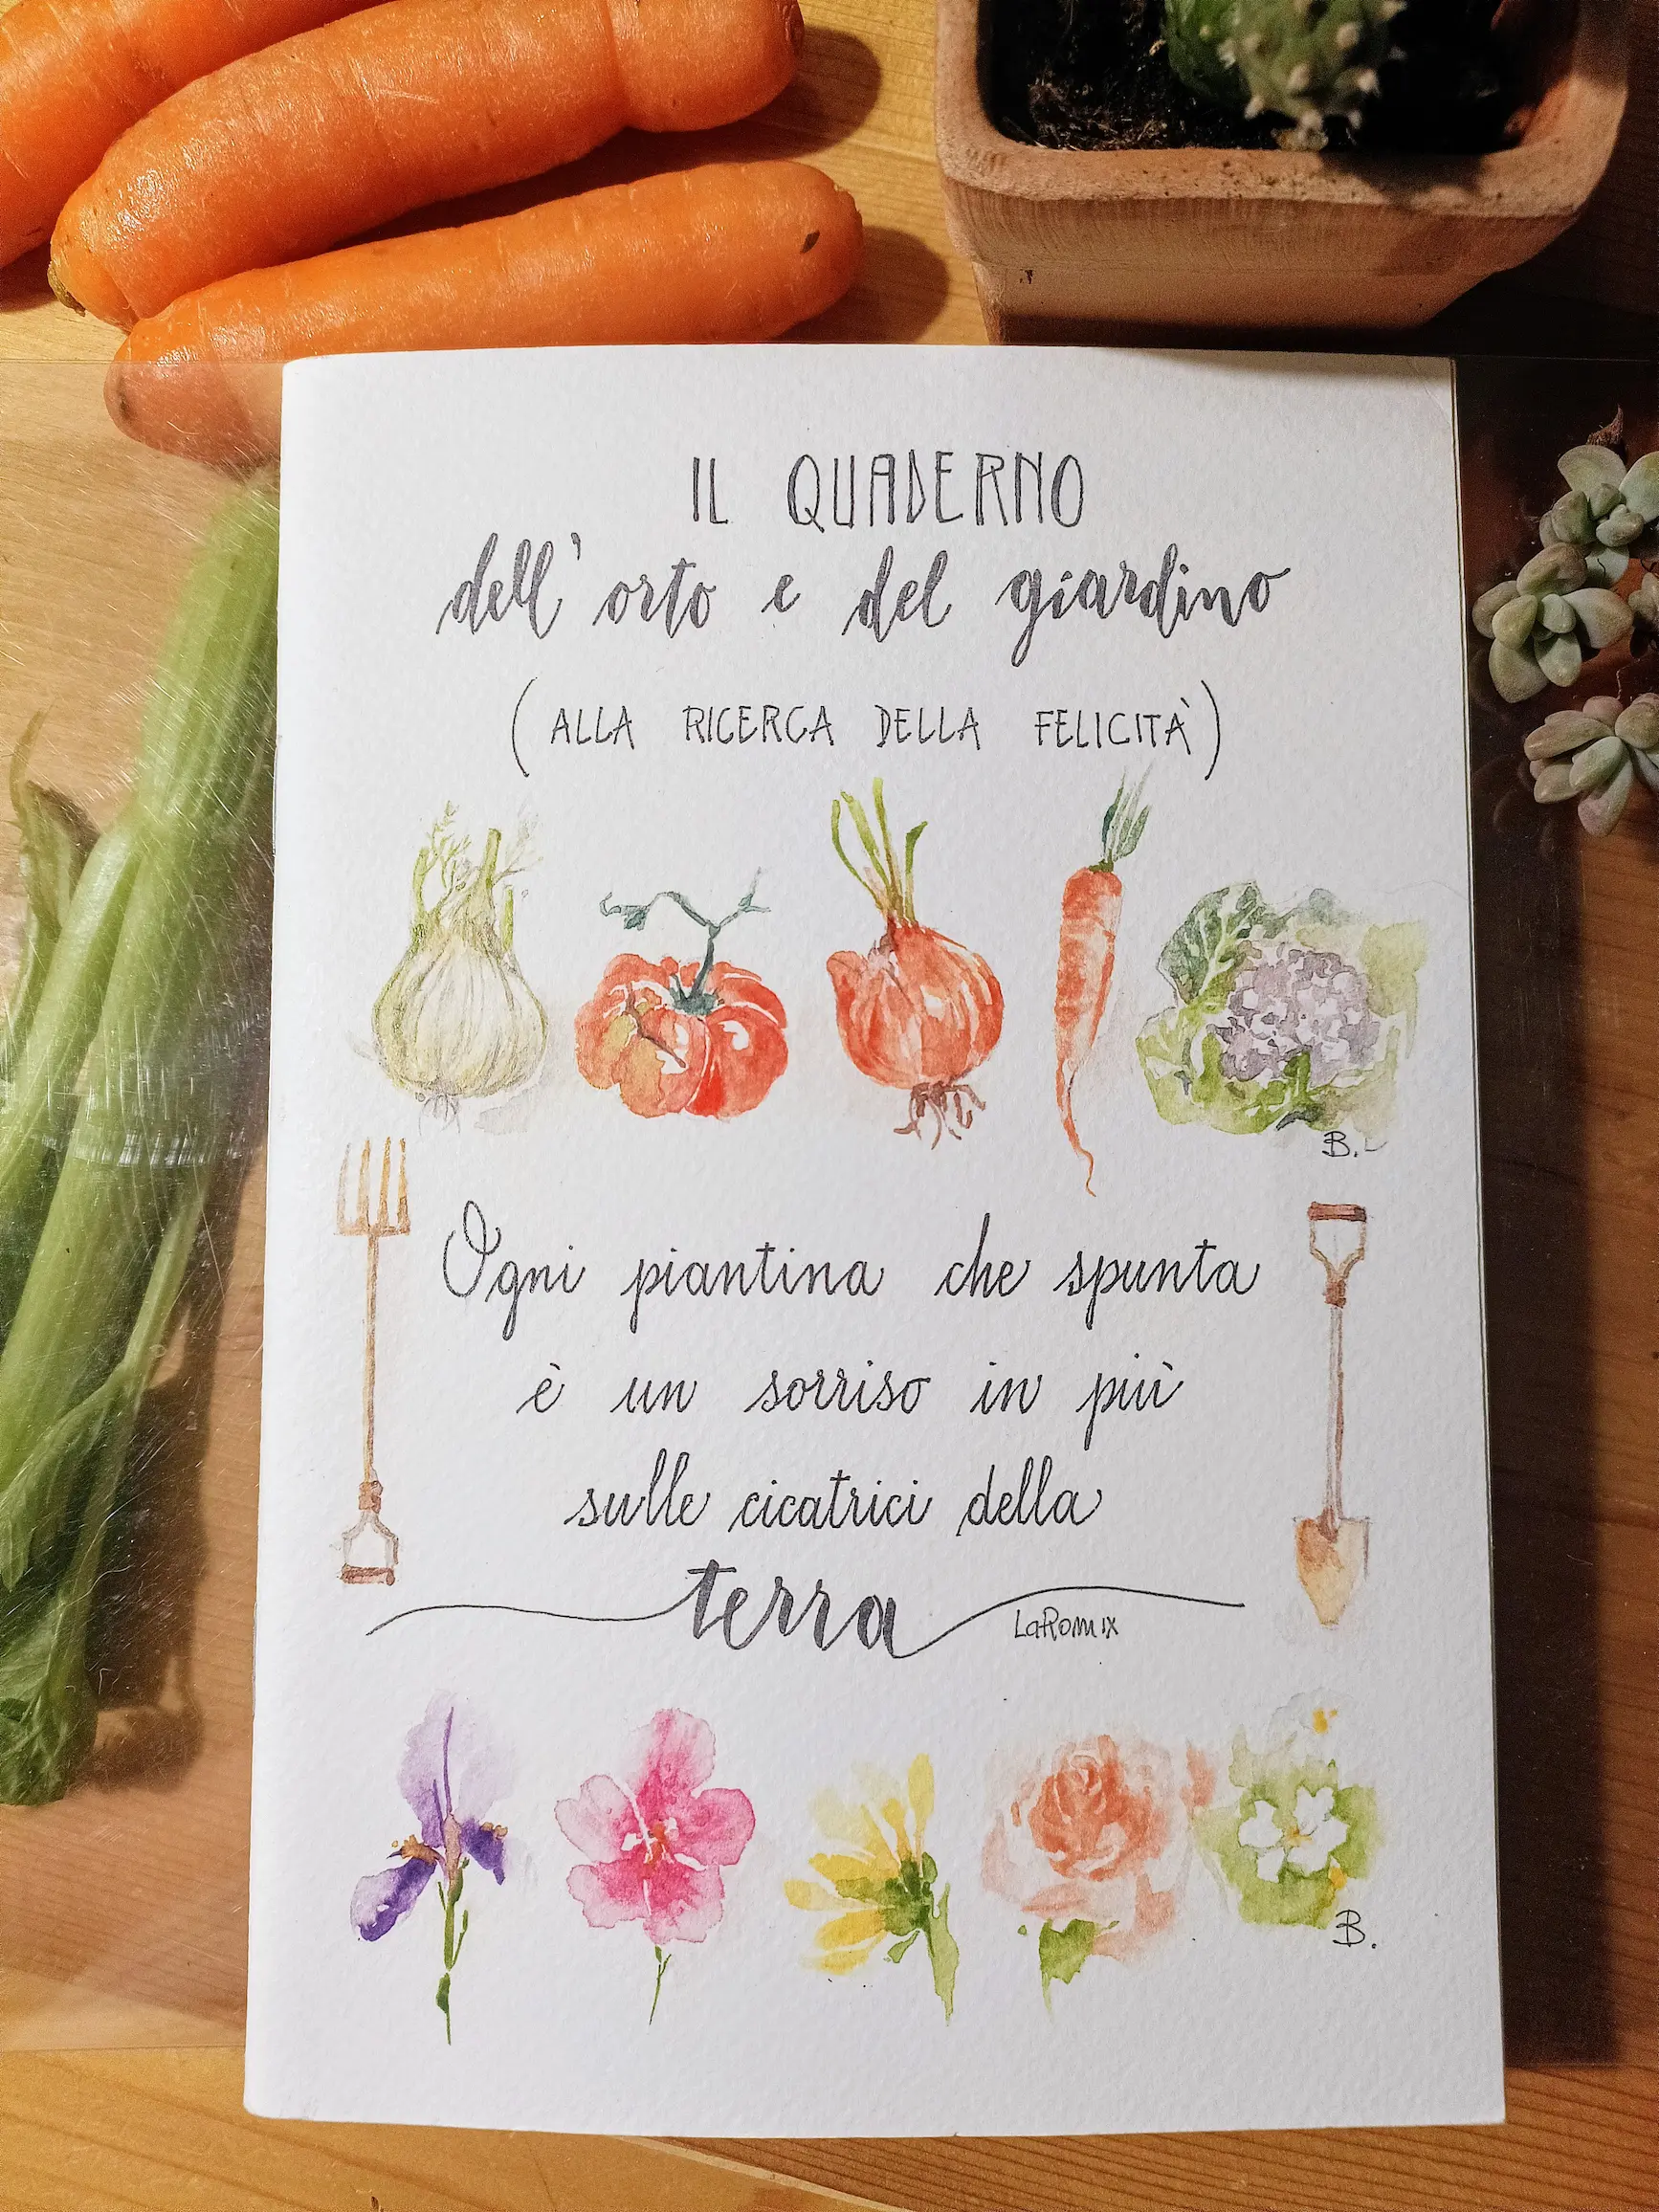 IL QUADERNO
dell'orto e del giardino
(ALLA RICERCA DELLA FELICITÀ)
B.
Ogni piantina che spunta
è un sorriso in più
sulle cicatrici della
terra
LaRomix
B.